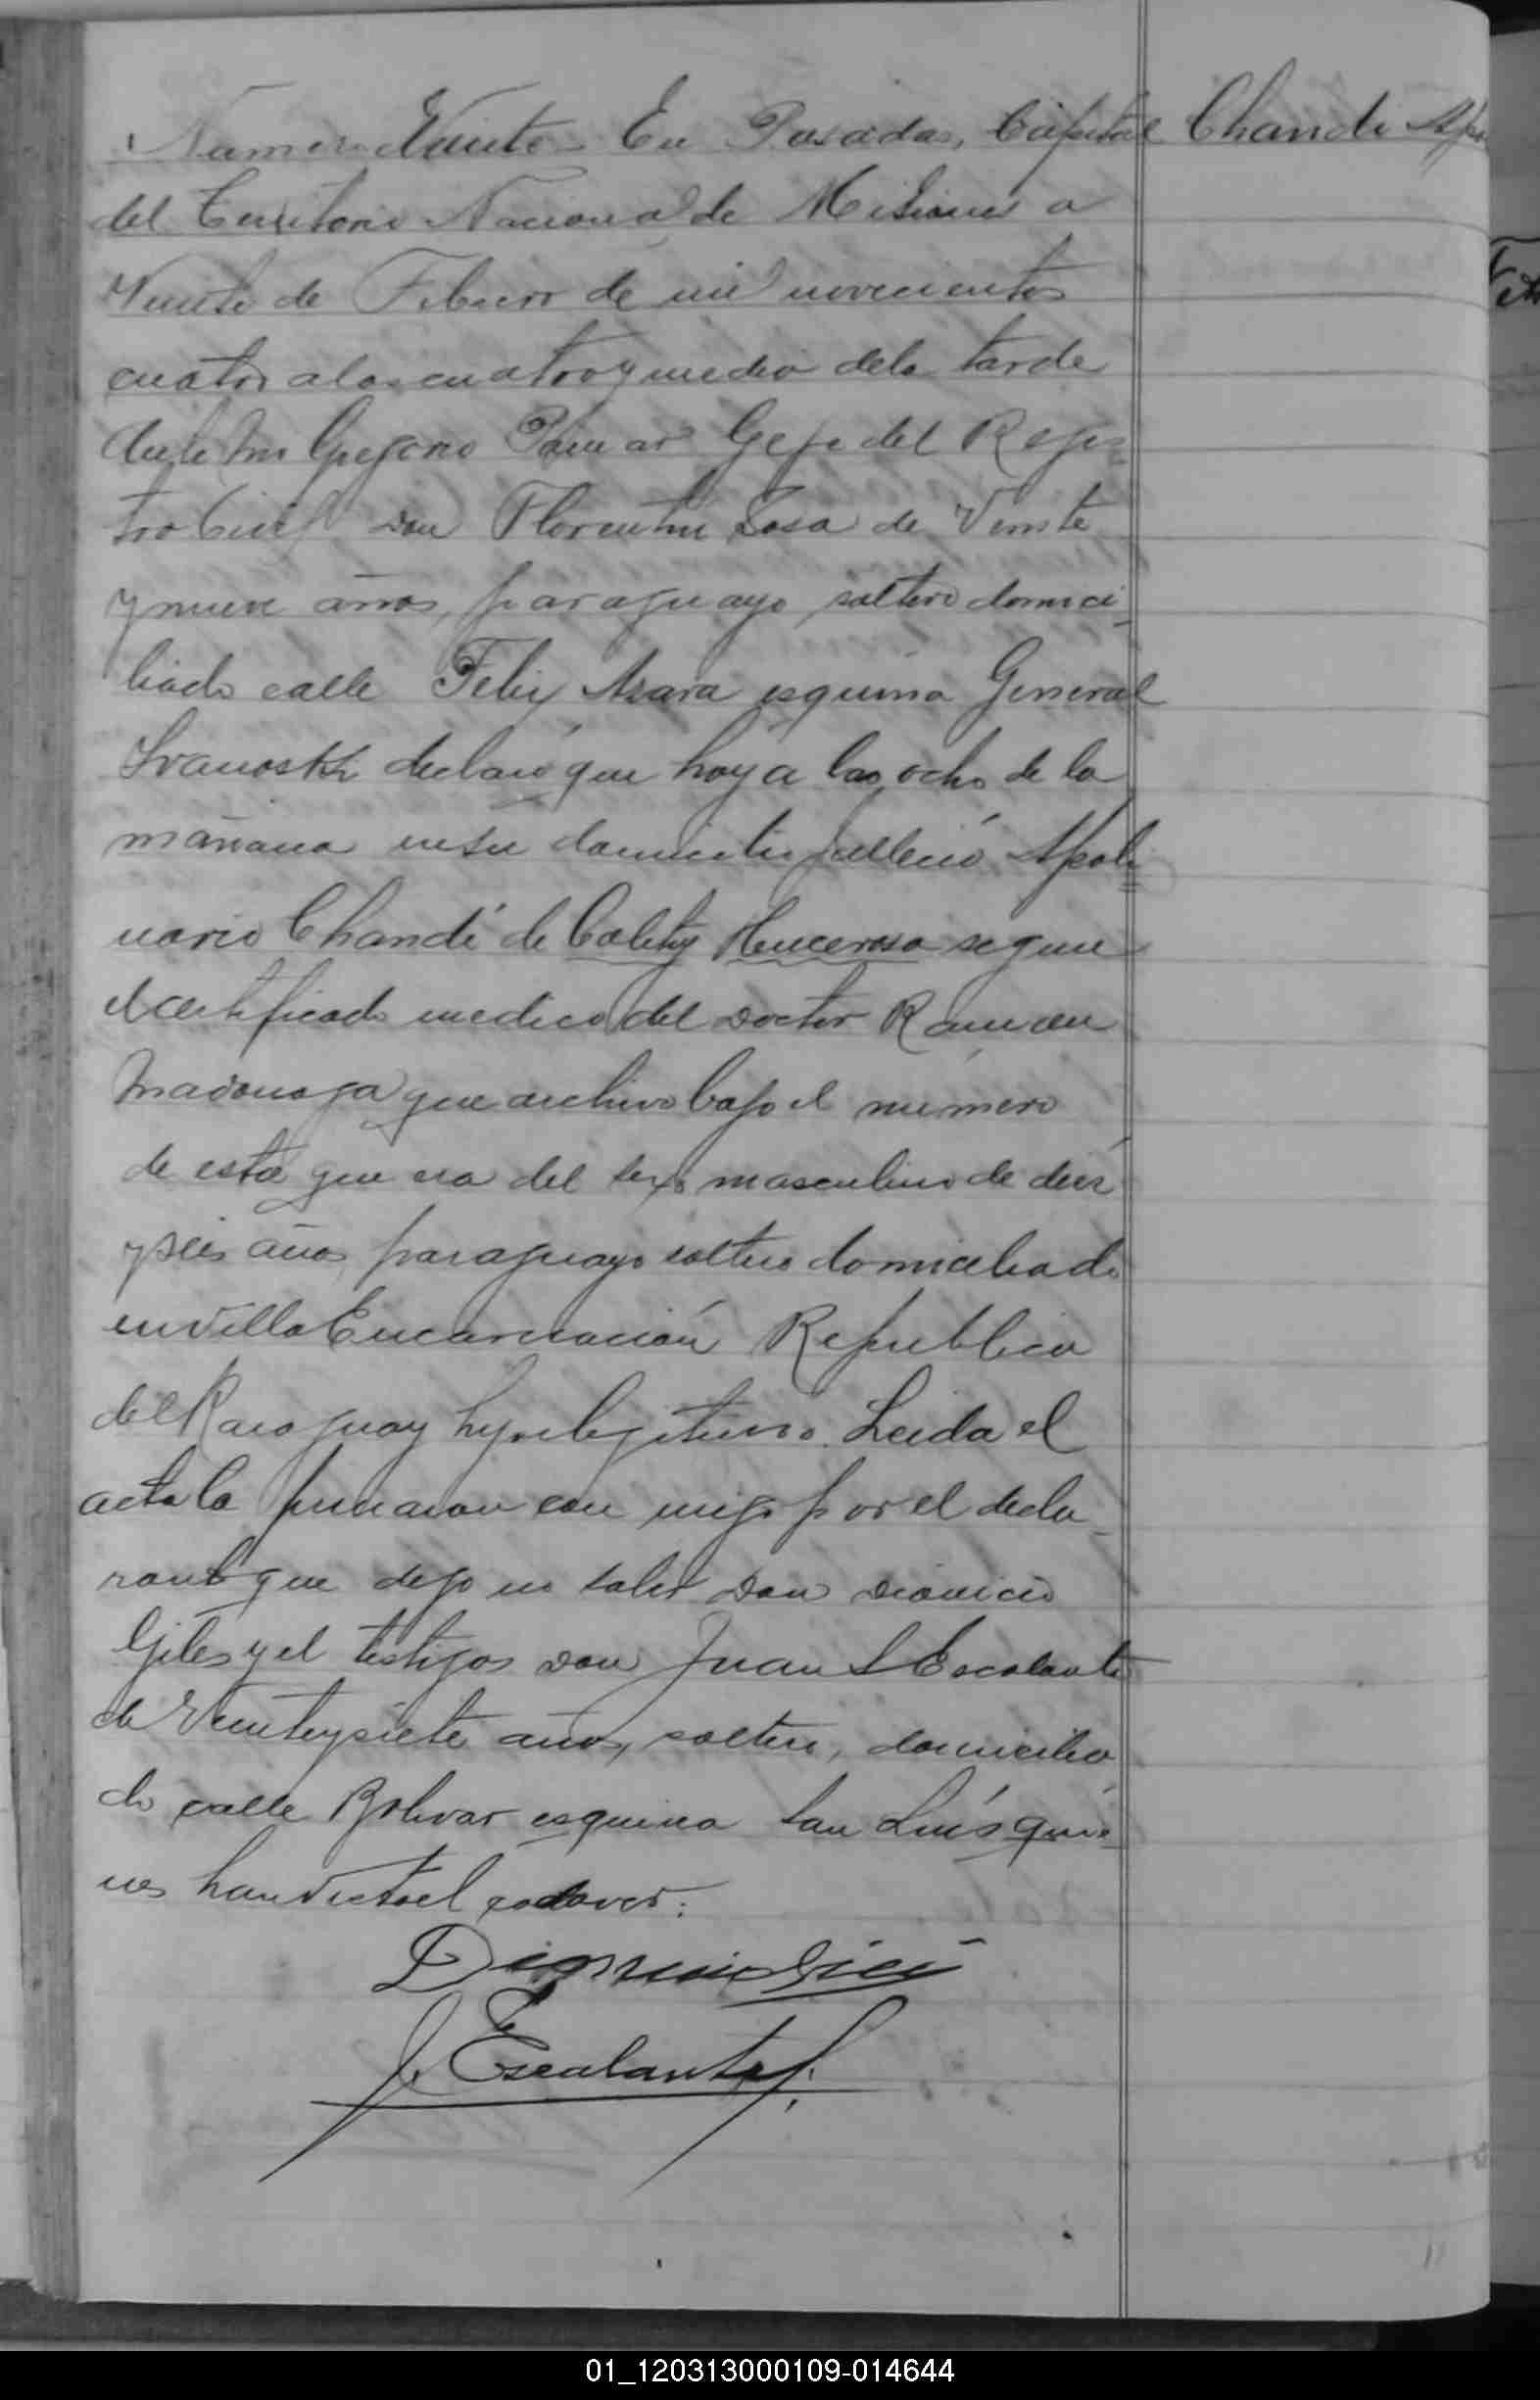 Numero Veinte En Posadas, Capital
Chandi Apo
del Territorio Nacional de Misiones a
Veinte de Febrero de mil novecientos
cuatro a las cuatro y media dela tarde
Ante mi Gregorio Gefe del Regis-
tro Civil Don Florentin Sosa de Veinte
y nueve años, paraguayo, soltero domici-
liado calle Felix Azara esquina General
Ivanoski declaró que hoy a las ocho de la
mañana en su domicilio falleció Apoli
nario Chandi de Colitis Ulcerosa segun
el certificado medico del Doctor Ramon
Madariaga que archivo bajo el número
de esta que era del sexo masculino de diez
y seis años, paraguayo soltero domiciliado
en Villa Encarnación Republica
del Paraguay hijo legitimo. Leida el
acta la firmaron con migo por el decla-
rante que dijo no saber Don Dionicio
Giles y el testigos Don Juan S Escalante
de Veinteysiete años, soltero, domicilia
do calle Bolivar esquina San Luis quie-
nes han visto el cadaver.
J. Escalante
01_120313000109-014644